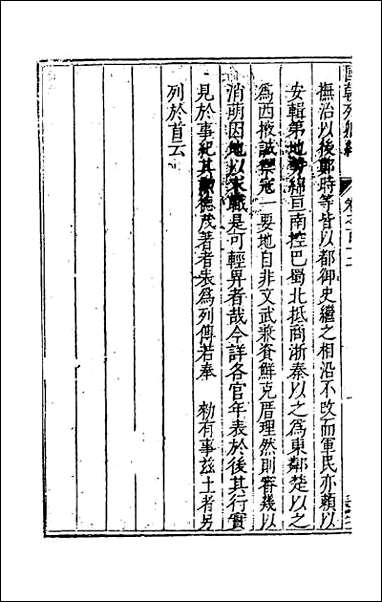 國朝列卿紀
撫治以後鄭時等皆以都御史繼之相沿不改而軍民亦賴以
安輯第地勢綿亘南控巴蜀北抵商浙秦以之為東鄰楚以之
為西掖誠禦冦一要地自非文武兼資鮮克厝理然則審幾以
消萌因地以求職是可輕畀者哉今詳各官年表於後其行實
見於事紀其勳德茂著者表為列傳若奉 勑有事兹土者另
列於首云